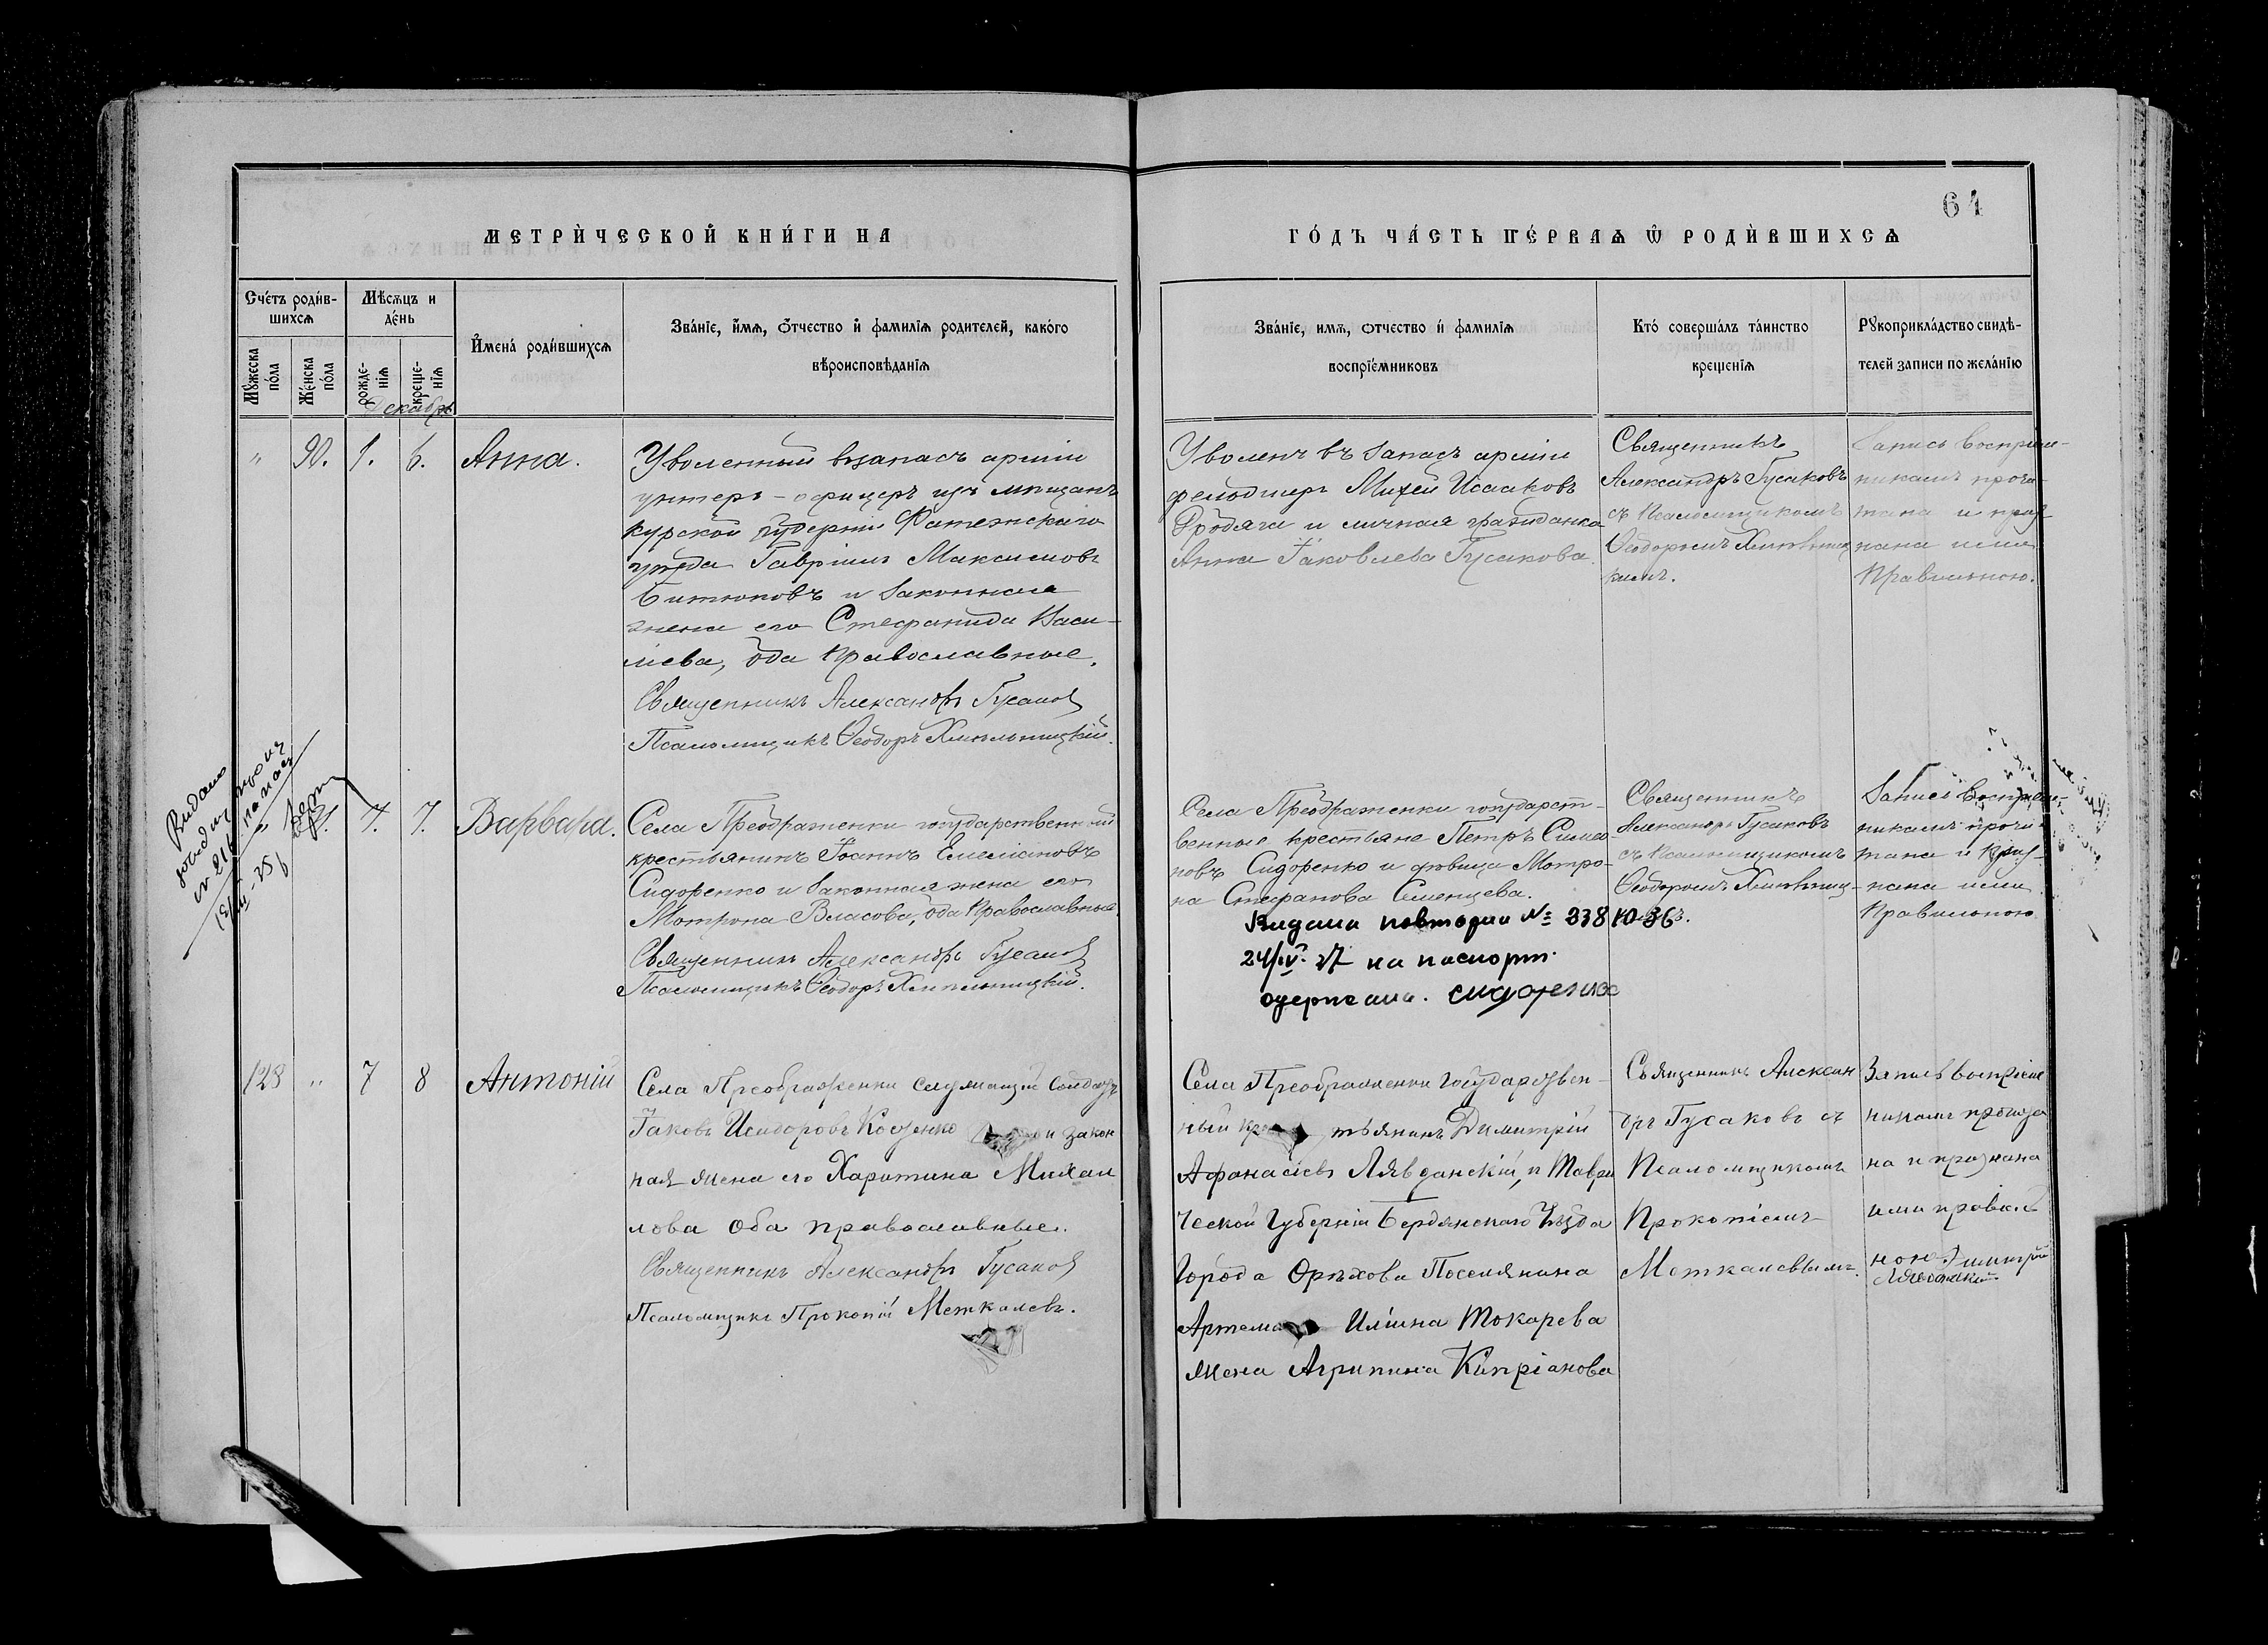 64
МЕТРИ́ЧЕСКОЙ КНИ́ГИ НА
ГО́ДЪ ЧА́СТЬ ПЕ́РВАѦ Ѿ РОДИ́ВШИХСѦ
Сче́тъ роди́в-
шихсѧ
Мѣсѧцъ и
де́нь
И҆мена̀ роди́вшихсѧ
Зва́нїе, и҆́мѧ, о҆́тчество и҆ фамилїѧ родителей, како́го
вѣроисповѣданїѧ
Мꙋжеска
по́ла
Же́нска
по́ла
рожде-
нїѧ
креще-
нїѧ
Декабрь
Зва́нїе, имѧ, ѻтчество и҆ фамилїѧ
воспрїе́мниковъ
Кто̀ соверша́лъ та́инство
крещенїѧ
Рꙋкоприкла́дство свидѣ-
телей записи по жела́нїю
" 90. 1. 6. Анна.
Уволенный взапасъ арміи
унтеръ-офицеръ изъ мѣщанъ
Курской губерніи Фатежскаго
уѣзда Гавріилъ Максимовъ
Битюковъ и законная
жена его Стефанида Васи-
лiева, оба православные.
Священникъ Александръ Гусаковъ
Псаломщикъ Ѳеодоръ Хмѣльницкій.
Уволенъ въ запасъ арміи
фельдшеръ Михей Исааковъ
Бродяга и личная гражданка
Анна Іаковлева Гусакова.
Священникъ
Александръ Гусаковъ
съ Псаломщикомъ
Ѳеодоромъ Хмѣльниц
кимъ.
Запись воспріем-
никамъ прочи-
тана и приз-
нана ими
Правильною.
Видано
№ 216 на пасп
91. 7. 7. Варвара.
Села Преображенки государственный
крестьянинъ Іоаннъ Емеліановъ
Сидоренко и законная жена его
Мотрона Власова, оба православные.
Священникъ Александръ Гусаковъ
Псаломщикъ Ѳеодоръ Хмѣльницкій.
Села Преображенки государст-
венные крестьяне Петръ Симео-
новъ Сидоренко и дѣвица Мотро-
на Стефанова Семенцева.
Видана повторно № 338
24/IV. 37 на паспорт.
одержала. Сидоренко
Священникъ
Александръ Гусаковъ
съ Псаломщикомъ
Ѳеодоромъ Хмѣльниц-
Запись воспріем-
никамъ прочи-
тана и приз-
нана ими
Правильною
128 " 7 8 Антоній
Села Преображенки служащій солдатъ
Іаковъ Исидоровъ Костенко и закон
ная жена его Харитина Михаи
лова оба православные.
Священникъ Александръ Гусаковъ
Псаломщикъ Прокопій Меткалевъ.
Села Преображенки Государствен-
ный крестьянинъ Димитрій
Афанасіевъ Лявданскій, и Таври
ческой Губерніи Бердянскаго Уѣзда
Города Орѣхова Поселянина
Артема Иліина Токарева
жена Агрипина Кипріанова
Священникъ Алексан
дръ Гусаковъ съ
Псаломщикомъ
Прокопіемъ
Меткалевымъ.
Запись воспріем
никамъ прочита
на и признана
ими правиль
ною Димитрій
Лявданскій.